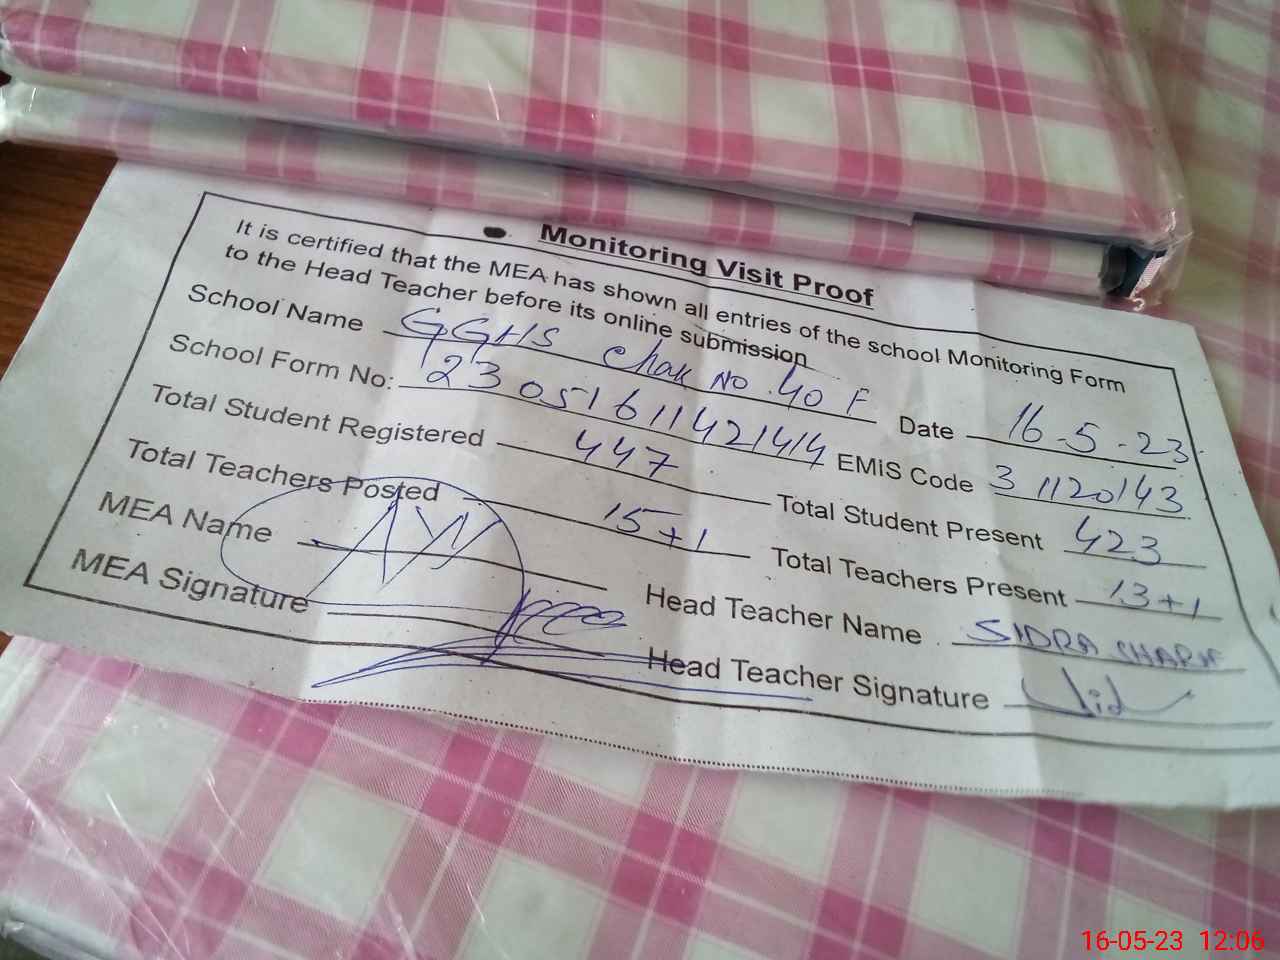 Monitoring Visit Proof
It is certified that the MEA has shown all entries of the school Monitoring Form
to the Head Teacher before its online submission
School Name GGHS Chak No. 40 F Date 16-5-23
School Form No: 23051611421414 EMIS Code 31120143
Total Student Registered 447 Total Student Present 423
Total Teachers Posted 15+1 Total Teachers Present 13+1
MEA Name Head Teacher Name SIDRA
MEA Signature Head Teacher Signature
16-05-23 12:06